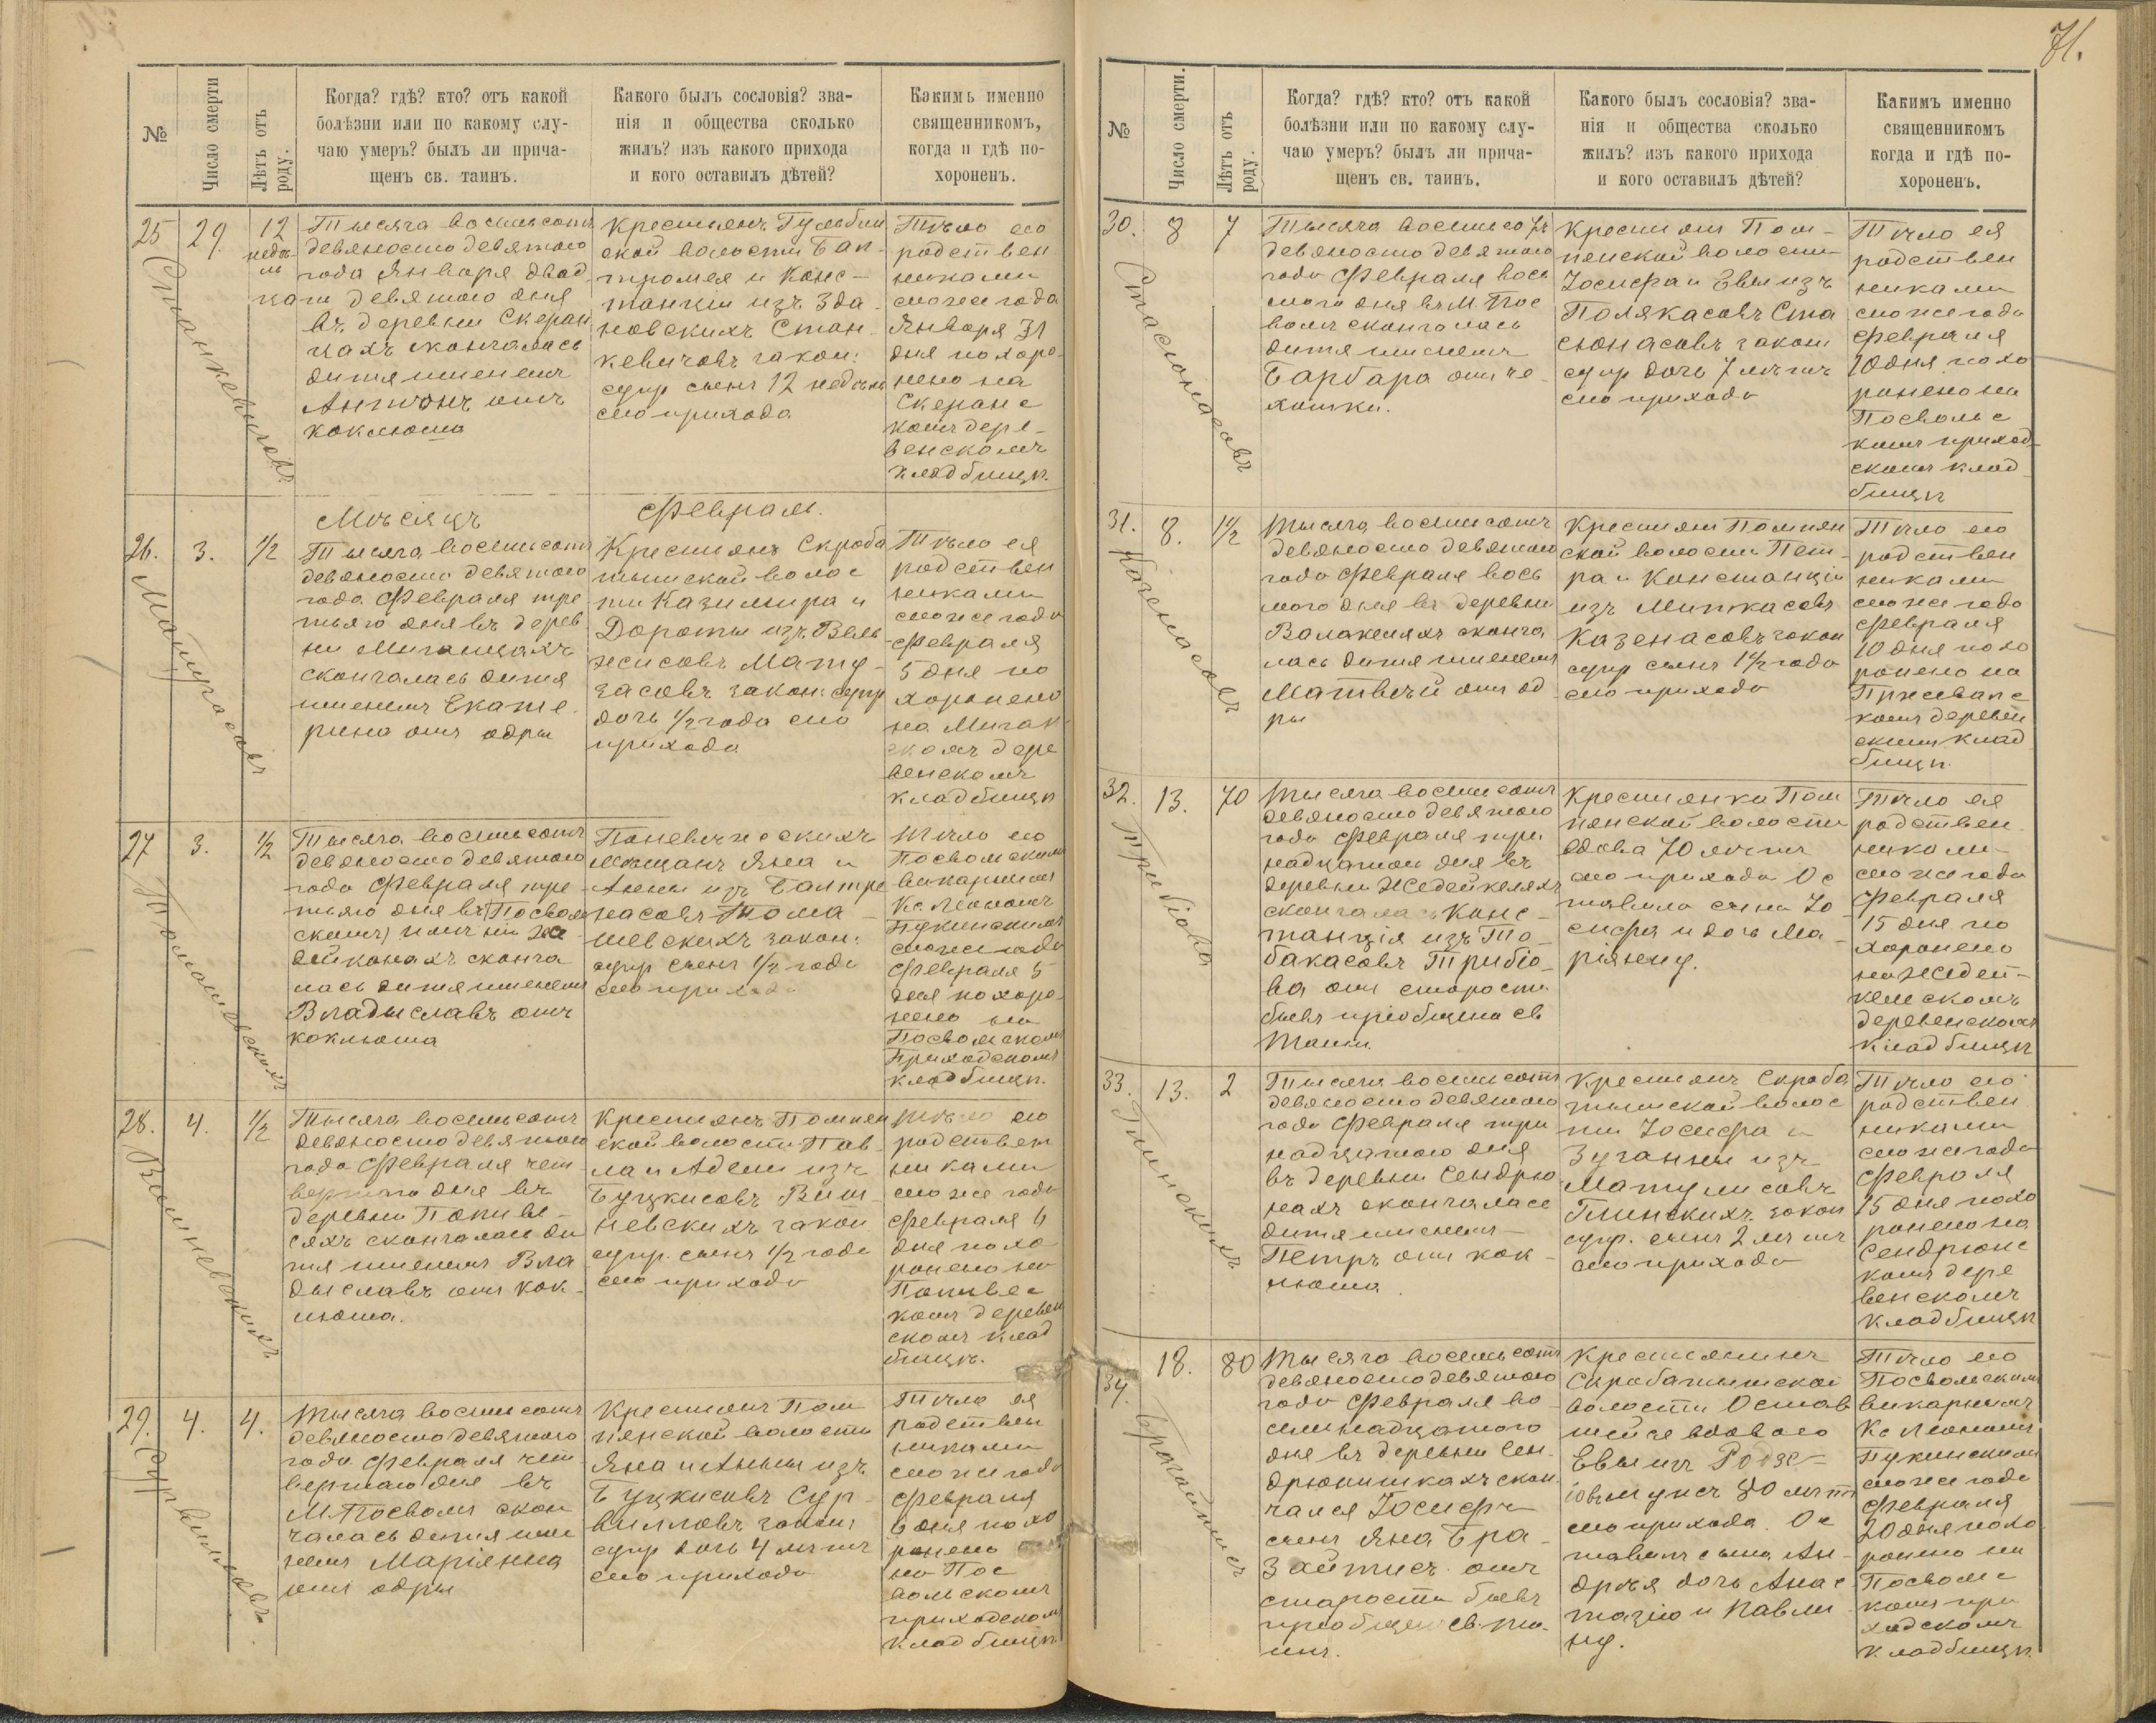 71.
№
Число смерти
Лѣтъ отъ роду.
Когда? гдѣ? кто? отъ какой
болѣзни или по какому слу-
чаю умеръ? былъ ли прича-
щенъ св. таинъ.
Какого былъ сословія? зва-
нія и общества сколько
жилъ? изъ какого прихода
и кого оставилъ дѣтей?
Какимъ именно
священникомъ,
когда и гдѣ по-
хороненъ.
25
Станкевичовъ
29.
12
недѣ
ль
Тысяча восемьсотъ
девяносто девятого
года Января двад
цать девятого дня
въ деревни Скеран
цахъ скончалась
дитя именемъ
Антонъ отъ
коклюша
Крестьянъ Гульбин
ской волости Бал
тромея и Конс-
танціи изъ Зда
новскихъ Стан-
кевичовъ закон:
супр сынъ 12 недѣль
сего прихода
Тѣло его
родствен
никами
сегоже года
Января 31
дня похоро
нено на
Скеранс
комъ дере-
венскомъ
кладбищѣ.
Мѣсяцъ Февраль.
26.
Матугасовъ
3.
1/2
Тысяча восемьсотъ
девяносто девятого
года Февраля тре
тьяго дня въ дерев
ни
скончалась дитя
именемъ Екате
рина отъ одры
Крестьянъ Скроба
тышской волос
ти Казимира и
Дороты изъ
закон: супр
дочь 1/2 года сего
прихода
Тѣло ея
родствен
никами
сегоже года
Февраля
5 дня по
хоронено
на
скомъ дере
венскомъ
кладбищѣ
27
Томашевскихъ
3.
1/2
Тысяча восемьсотъ
девяносто девятого
года Февраля тре
тьяго дня въ Посволь
скомъ имѣніи
сконча
лась дитя именемъ
Владыславъ отъ
коклюша
Поневѣжскихъ
мѣщанъ Яна и
Анны изъ Балтре
насовъ Тома-
шевскихъ закон:
супр сынъ 1/2 года
сего прихода
Тѣло его
Посвольскимъ
викарнымъ
Кс Леономъ
Пукинскимъ
сегоже года
Февраля 5
дня похоро-
нено на
Посвольскомъ
Приходскомъ
кладбищѣ.
28.
Вишневскихъ
4.
1/2
Тысяча восемьсотъ
девяносто девятого
года Февраля чет
вертаго дня въ
деревни Попиве-
сяхъ скончалась ди
тя именемъ Вла
дыславъ отъ кок-
люша.
Крестьянъ Помпян
ской волости Пав-
ла и Адели изъ
Буцкисовъ Виш-
невскихъ закон
супр. сынъ 1/2 года
сего прихода
Тѣло его
родствен
никами
сегоже года
Февраля 6
дня похо
ронено на
Попивес
комъ деревен
скомъ клад
бищѣ.
29.
Сурвилловъ
4.
4.
Тысяча восемьсотъ
девяносто девятого
года Февраля чет
вертаго дня въ
М Посволи скон
чалась дитя име
немъ Маріянна
отъ одры
Крестьянъ Пом
пянской волости
Яна и Анны изъ
Буцкисовъ Сур-
вилловъ закон
супр дочь 4 лѣтъ
сего прихода
Тѣло ея
родствен
никами
сегоже года
Февраля
6 дня похо
ронено
на Пос
вольскомъ
приходском
кладбищѣ.
№
Число смерти.
Лѣтъ отъ роду.
Когда? гдѣ? кто? отъ какой
болѣзни или по какому слу-
чаю умеръ? былъ ли прича-
щенъ св. таинъ.
Какого былъ сословія? зва-
нія и общества сколько
жилъ? изъ какого прихода
и кого оставилъ дѣтей?
Какимъ именно
священникомъ
когда и гдѣ по-
хороненъ.
30.
Стасюнасовъ
8
7
Тысяча восемьсотъ
девяносто девятого
года Февраля вось
мого дня въ М. Пос
воли скончалась
дитя именемъ
Барбара отъ че-
хотки.
Крестьянъ Пом-
пенской волости
Іосифа и Евы изъ
Полякасовъ Ста
сюнасовъ закон
супр дочь 7 лѣтъ
сего прихода
Тѣло ея
родствен
никами
сегоже года
Февраля
10 дня похо
ронено на
Посвольс
комъ приход
скомъ клад
бищѣ
31.
Казенасовъ
8.
1 1/2
Тысяча восемьсотъ
девяносто девятого
года Февраля вось
мого дня въ деревни
Валакеляхъ сконча
лась дитя именемъ
Матвѣй отъ од
ры
Крестьянъ Помпян
ской волости Пет-
ра и Констанціи
изъ Миткасовъ
Казенасовъ закон
супр сынъ 1 1/2 года
сего прихода
Тѣло его
родствен
никами
сегоже года
Февраля
10 дня похо
ронено на
комъ деревен
скомъ клад
бищѣ.
32.
Трибіова
13.
70
Тысяча восемьсотъ
девяносто девятого
года Февраля три
надцатого дня въ
деревни Жедейкеляхъ
скончалась Конс-
танція изъ То-
бакасовъ Трибіо-
ва отъ старости
бывъ пріобщена св
Таинъ.
Крестьянка Пом
пянской волости
вдова 70 лѣтъ
сего прихода Ос
тавила сына Іо
сифа и дочь Ма-
ріянну.
Тѣло ея
родствен
никами
сегоже года
Февраля
15 дня по
хоронено
на Жедей-
кельскомъ
деревенскомъ
кладбищѣ
33.
Глинскихъ
13.
2
Тысяча восемьсотъ
девяносто девятого
года Февраля три
надцатого дня
въ деревни Сендрю
нахъ скончалась
дитя именемъ
Петръ отъ кок-
люша.
Крестьянъ Скроба
тышской волос
ти Іосифа и
Зузанны изъ
Матулисовъ
Глинскихъ закон
супр. сынъ 2 лѣтъ
сего прихода
Тѣло его
родствен
никами
сегоже года
Февраля
15 дня похо
ронено на
Сендрюнс
комъ дере
венскомъ
кладбищѣ
34.
Бразайтисъ
18.
80
Тысяча восемьсотъ
девяносто девятого
года Февраля во
семнадцатого
дня въ деревни Сен
дрюнишкахъ скон
чался Іосифъ
сынъ Яна Бра-
зайтисъ отъ
старости бывъ
пріобщенъ св. та
инъ.
Крестьянинъ
Скробатышской
волости Остав
шейся вдового
Евы изъ
80 лѣтъ
сего прихода. Ос
тавилъ сына Ан-
дрея дочь Анас
тазію и Павли
ну.
Тѣло его
Посвольскимъ
викарнымъ
Кс Леономъ
Пукинскимъ
сегоже года
Февраля
20 дня похо
ронено на
Посвольс
комъ при
ходскомъ
кладбищѣ.